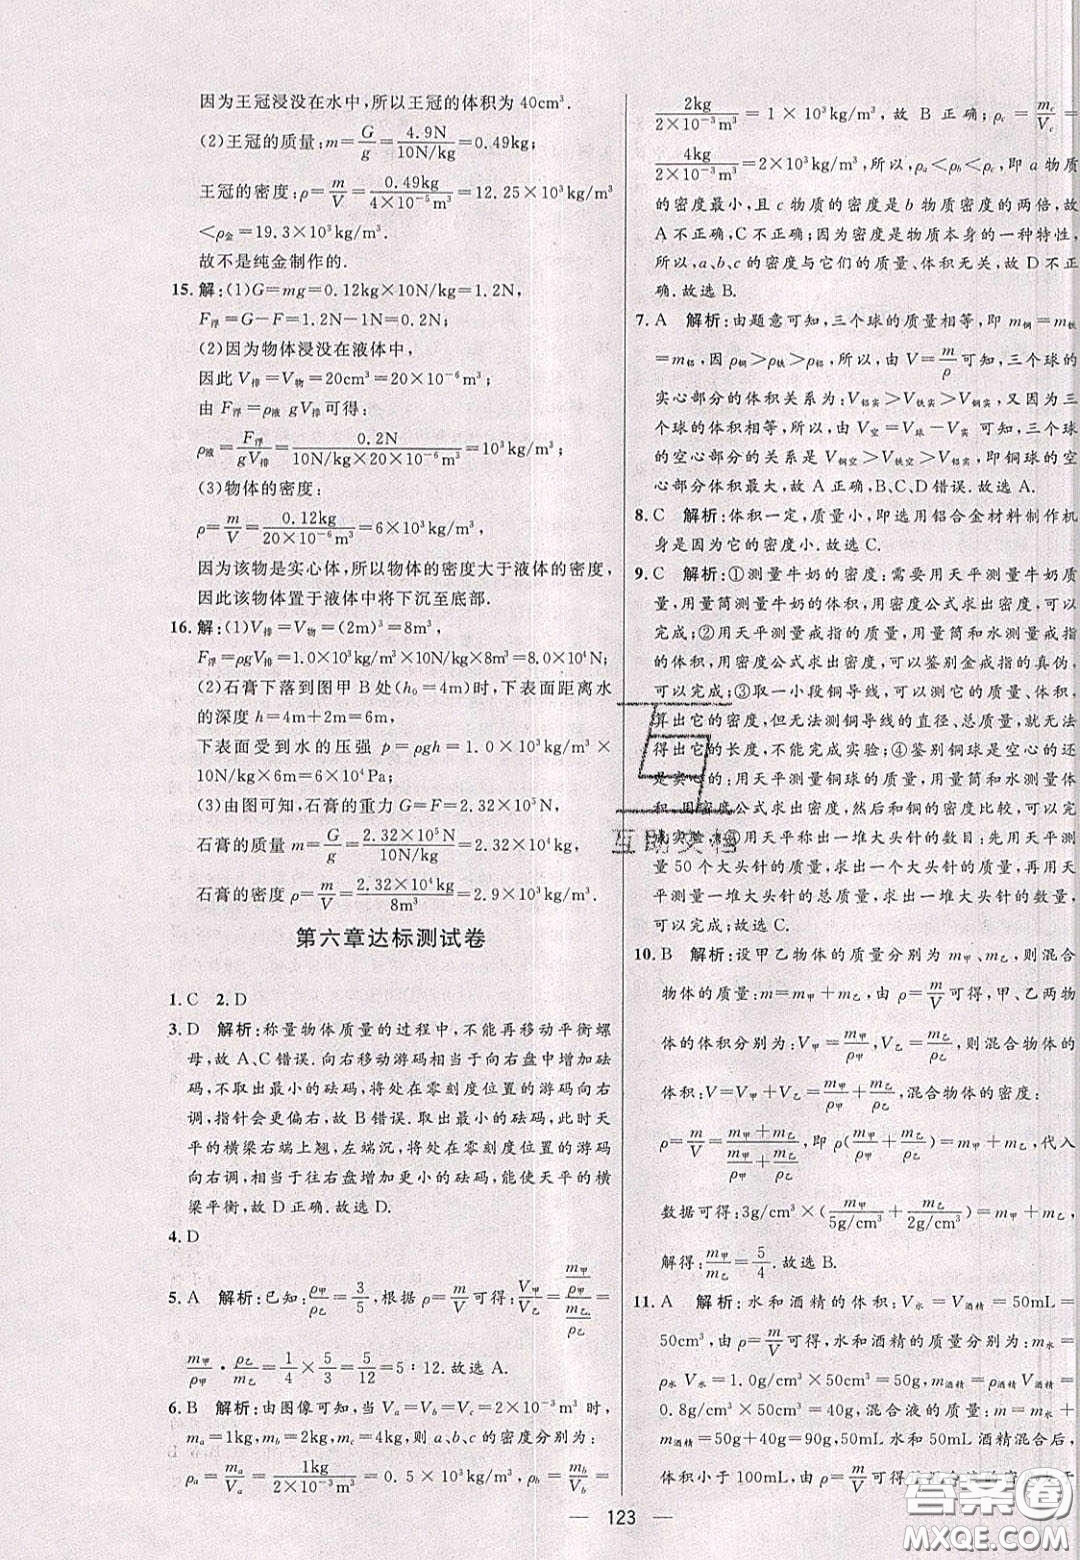 因为王冠浸没在水中,所以王冠的体积为40cm³.
(2)王冠的质量:m=G/g=4.9N/10N/kg=0.49kg
王冠的密度:ρ=m/V=0.49kg/4×10⁻⁵m³=12.25×10³kg/m³
<ρ金=19.3×10³kg/m³.
故不是纯金制作的.
15.解:(1)G=mg=0.12kg×10N/kg=1.2N,
F浮=G-F=1.2N-1N=0.2N.
(2)因为物体浸没在液体中,
因此V排=V物=20cm³=20×10⁻⁶m³;
由 F浮=ρ液 gV排可得:
ρ液=F浮/gV排=0.2N/10N/kg×20×10⁻⁶m³=10³kg/m³
(3)物体的密度:
ρ=m/V=0.12kg/20×10⁻⁶m³=6×10³kg/m³,
因为该物是实心体,所以物体的密度大于液体的密度,
因此该物体置于液体中将下沉至底部.
16.解:(1)V排=V物=(2m)³=8m³,
F浮=ρgV排=1.0×10³kg/m³×10N/kg×8m³=8.0×10⁴N;
(2)石膏下落到图甲B处(h₀=4m)时,下表面距离水
的深度h=4m+2m=6m,
下表面受到水的压强 p=ρgh=1.0×10³kg/m³×
10N/kg×6m=6×10⁴Pa;
(3)由图可知,石膏的重力G=F=2.32×10⁵N
石膏的质量 m=G/g=2.32×10⁵N/10N/kg=2.32×10⁴kg,
石膏的密度 ρ=m/V=2.32×10⁴kg/8m³=2.9×10³kg/m³.
第六章达标测试卷
1.C 2.D
3.D 解析:称量物体质量的过程中,不能再移动平衡螺
母,故A、C错误.向右移动游码相当于向右盘中增加砝
码,不取出最小的砝码,将处在零刻度位置的游码向右
调,指针会更偏右,故B错误.取出最小的砝码,此时天
平的横梁右端上翘,左端沉,将处在零刻度位置的游码
向右调,相当于往右盘增加更小的砝码,能使天平的横
梁平衡,故D正确.故选D.
4.D
5.A 解析:已知:ρ甲/ρ乙=3/5,根据ρ=m/V可得:V甲/V乙=(m甲/ρ甲)/(m乙/ρ乙)=
m甲/ρ甲·ρ乙/m乙=1/4×5/3=5/12=5:12.故选A.
6.B 解析:由图像可知,当Vₐ=V_b=V_c=2×10⁻³m³时,
mₐ=1kg,m_b=2kg,m_c=4kg,则a、b、c的密度分别为:
ρₐ=mₐ/Vₐ=1kg/2×10⁻³m³=0.5×10³kg/m³,ρ_b=m_b/V_b=
2kg/2×10⁻³m³=1×10³kg/m³,故B正确;ρ_c=m_c/V_c=
4kg/2×10⁻³m³=2×10³kg/m³,所以,ρₐ<ρ_b<ρ_c,即a物质
的密度最小,且c物质的密度是b物质密度的两倍,故
A不正确,C不正确;因为密度是物质本身的一种特性,
所以,a、b、c的密度与它们的质量、体积无关,故D不正
确.故选B.
7.A 解析:由题意可知,三个球的质量相等,即m铜=m铁
=m铝,因ρ铜>ρ铁>ρ铝,所以,由V=m/ρ可知,三个球的
实心部分的体积关系为:V铝实>V铁实>V铜实;又因为三
个球的体积相等,所以,由V空=V球-V实可知,三个球
的空心部分的关系是V铜空>V铁空>V铝空,即铜球的空
心部分体积最大,故A正确,B、C、D错误.故选A.
8.C 解析:体积一定,质量小,即选用铝合金材料制作机
身是因为它的密度小.故选C.
9.C 解析:①测量牛奶的密度;需要用天平测量牛奶质
量,用量筒测量牛奶的体积,用密度公式求出密度,可以
完成;②用天平测量戒指的质量,用量筒和水测量戒指
的体积,用密度公式求出密度,可以鉴别金戒指的真伪,
可以完成;③取一小段铜导线,可以测它的质量、体积,
算出它的密度,但无法测铜导线的直径、总质量,就无法
得出它的长度,不能完成实验;④鉴别铜球是空心的还
是实心的:用天平测量铜球的质量,用量筒和水测量体
积,用密度公式求出密度,然后和铜的密度比较,可以完
成实验;⑤用天平称出一堆大头针的数目;先用天平测
量50个大头针的质量,求出一个大头针的质量,再用天
平测量一堆大头针的总质量,求出一堆大头针的数量,
可以完成;故选C.
10.B 解析:设甲乙物体的质量分别为m甲、m乙,则混合
物体的质量:m=m甲+m乙,由ρ=m/V可得,甲、乙两物
体的体积分别为:V甲=m甲/ρ甲,V乙=m乙/ρ乙,则混合物体的
体积:V=V甲+V乙=m甲/ρ甲+m乙/ρ乙,混合物体的密度:
ρ=m/V=(m甲+m乙)/(m甲/ρ甲+m乙/ρ乙),即ρ(m甲/ρ甲+m乙/ρ乙)=m甲+m乙,代入
数据可得:3g/cm³×(m甲/5g/cm³+m乙/2g/cm³)=m甲+m乙,
解得:m甲/m乙=5/4.故选B.
11.A 解析:水和酒精的体积:V水=V酒精=50mL=
50cm³,由ρ=m/V可得,水和酒精的质量分别为:m水=
ρ水V水=1.0g/cm³×50cm³=50g,m酒精=ρ酒精V酒精=
0.8g/cm³×50cm³=40g,混合液的质量:m=m水+
m酒精=50g+40g=90g,水和50mL酒精混合后,
体积小于100mL,由ρ=m/V可得,
互助文档
答案圈
MXQE.COM
— 123 —